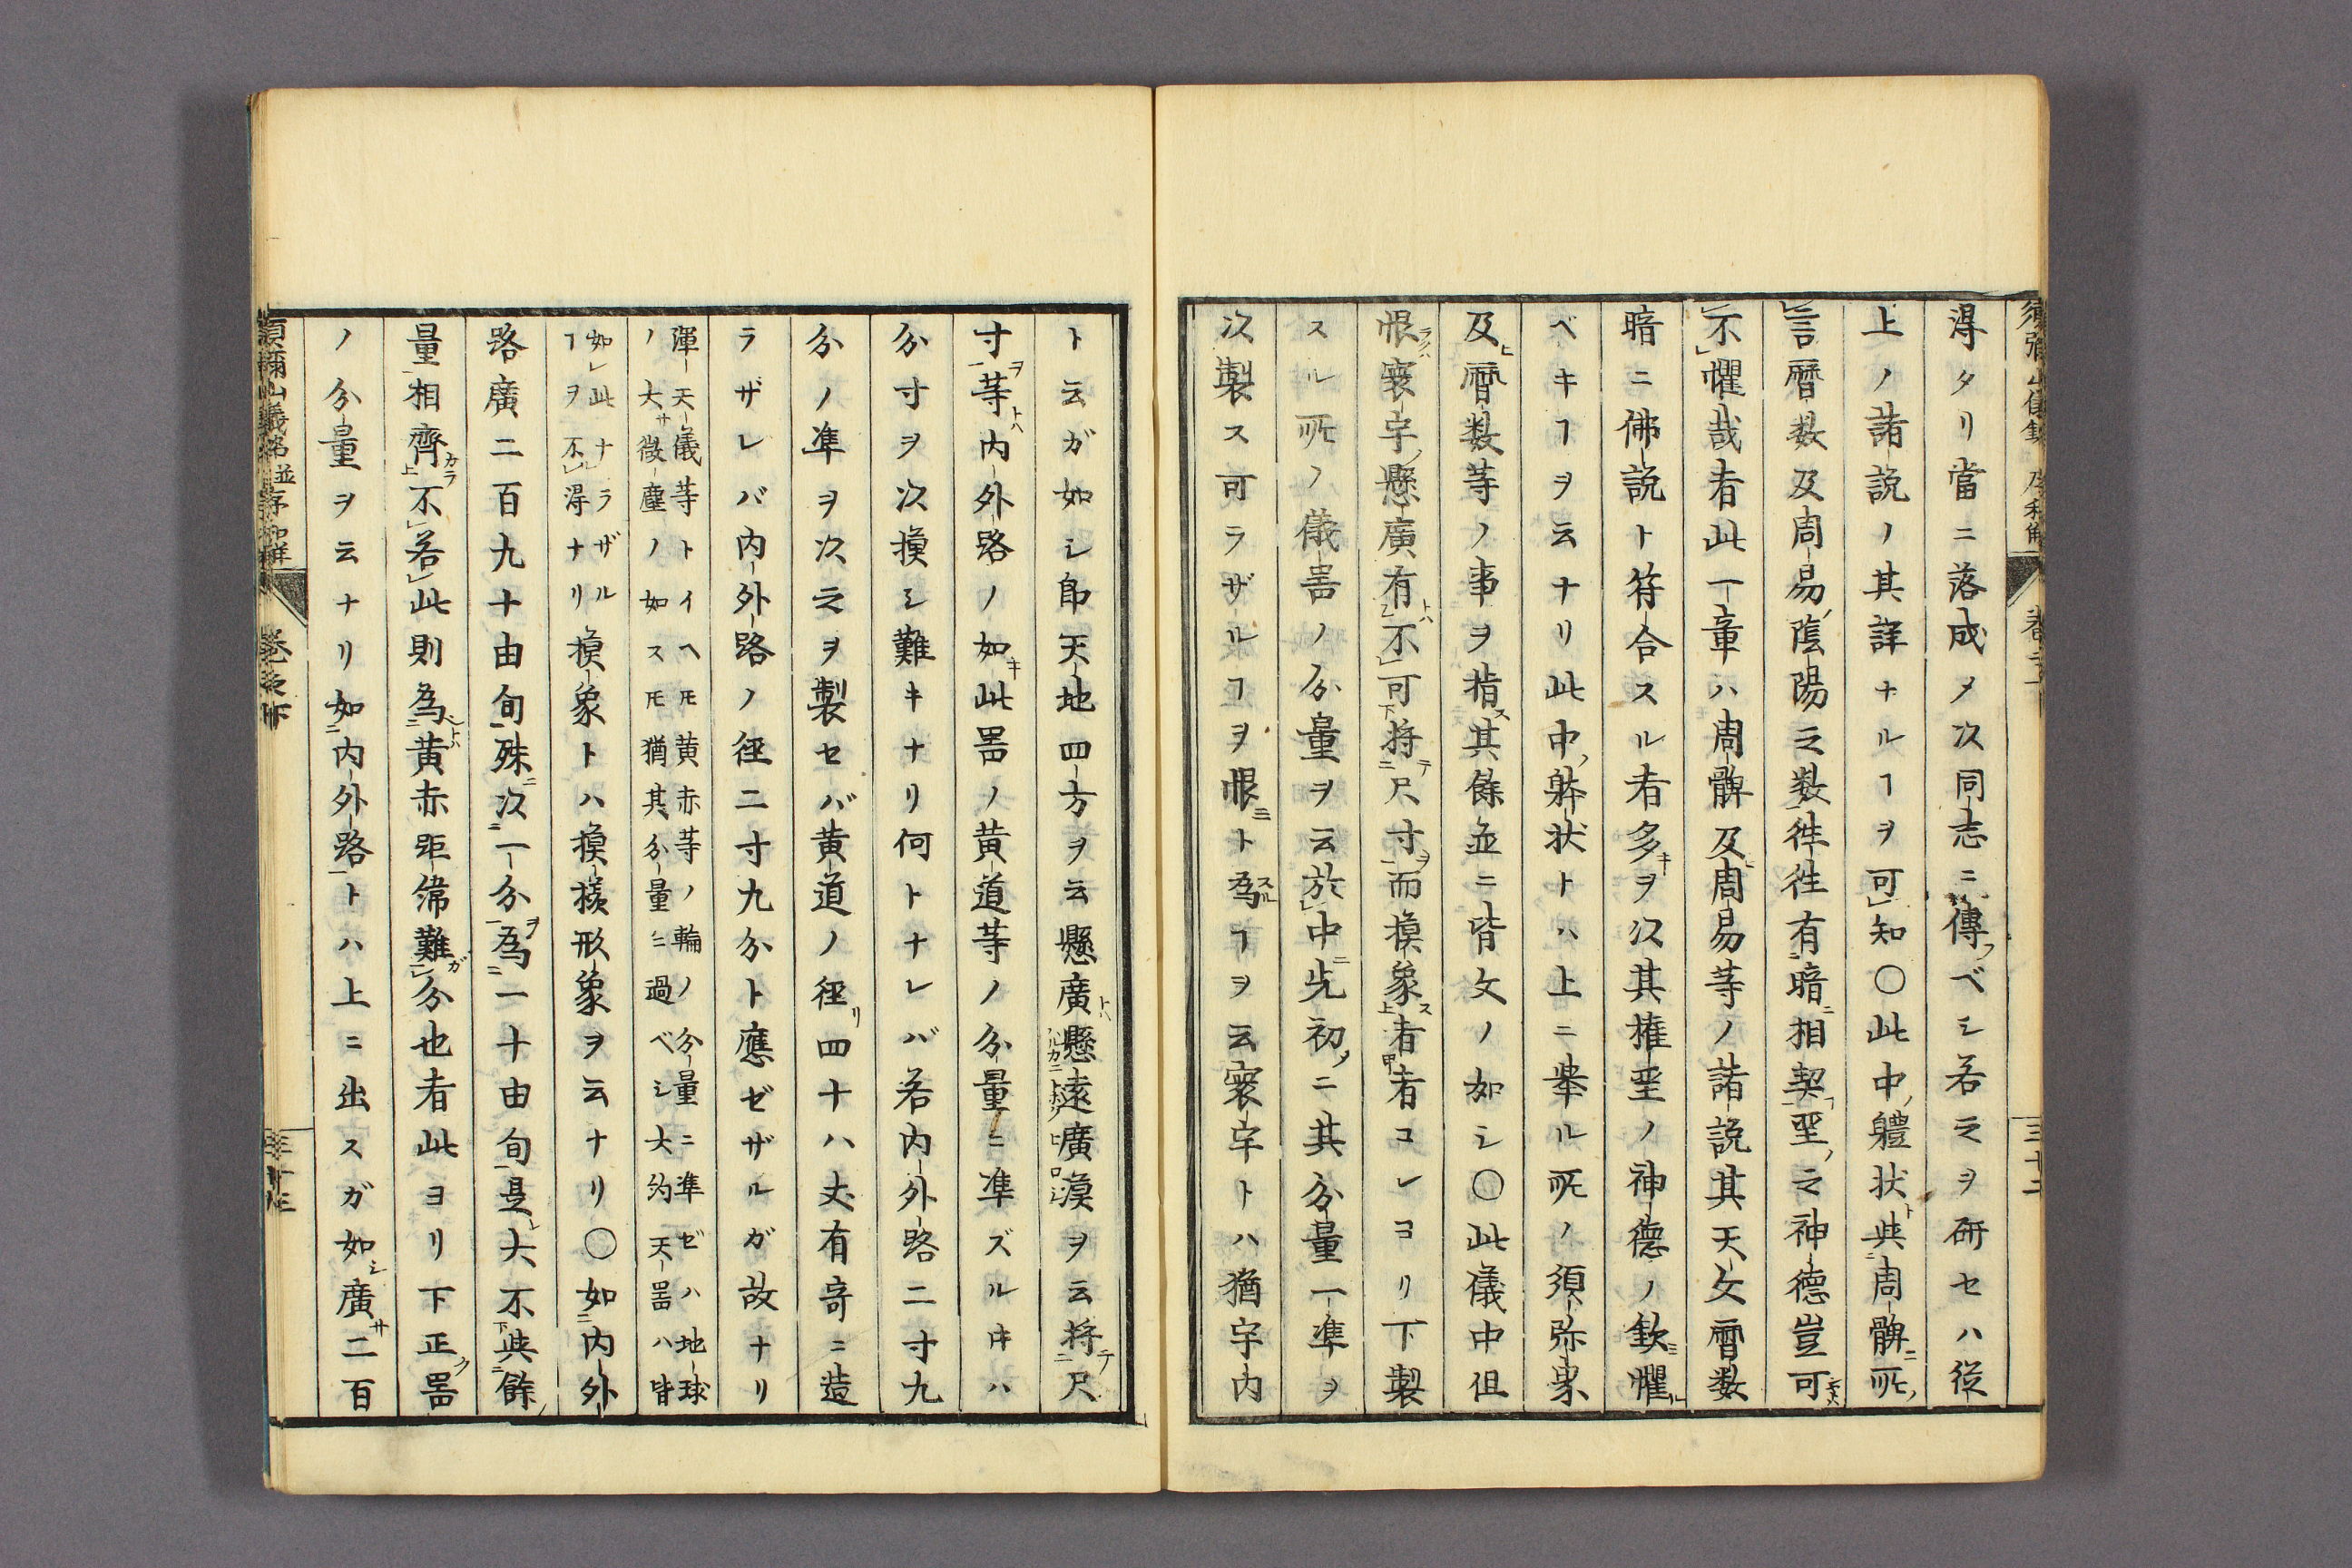 得タリ當ニ落成メ次同志ニ傳フベシ若之ヲ研セハ從
上ノ諸説ノ其詳ナルヿヲ可知〇此中軆状與周髀所
言暦数及周易陰陽之数徃徃有暗相契聖之神徳豈可
不懼哉者此一章ハ周髀及周易等ノ諸説其天文暦数
暗ニ佛説ト符合スル者多キヲ次其権聖ノ神徳ノ欽懼
ベキヿヲ云ナリ此中躰状トハ上ニ挙ル所ノ須弥界
及暦数等ノ事ヲ指ス其餘並ニ皆文ノ如シ〇此儀中但
恨寰宇懸廣有不可将尺寸而摸象者者コレヨリ下製
スル所ノ儀噐ノ分量ヲ云於中先初ニ其分量一準ヲ
次製ス可ラザルヿヲ恨ト為ヿヲ云寰宇トハ猶宇内
ト云ガ如シ即天地四方ヲ云懸廣トハ懸遠廣漠ヲ云将尺
寸等トハ内外路ノ如キ此噐ノ黄道等ノ分量ニ準ズル寸ハ
分寸ヲ次摸シ難キナリ何トナレバ若内外路二寸九
分ノ準ヲ次之ヲ製セバ黄道ノ径リ四十八丈有奇ニ造
ラザレバ内外路ノ径二寸九分ト應ゼザルガ故ナリ
渾天儀等トイヘ𪜈黄赤等ノ輪ノ分量ニ準ゼハ地球
ノ大サ微塵ノ如ス𪜈猶其分量ニ過ベシ大約天噐ハ皆
如此ナラザル
ヿヲ不得ナリ摸象トハ摸様形象ヲ云ナリ〇如内外
路廣二百九十由旬殊次一分為一十由旬是大不與餘
量相齊不若此則為黄赤距緯難分也者此ヨリ下正ク噐
ノ分量ヲ云ナリ如内外路トハ上ニ出スガ如シ廣サ二百